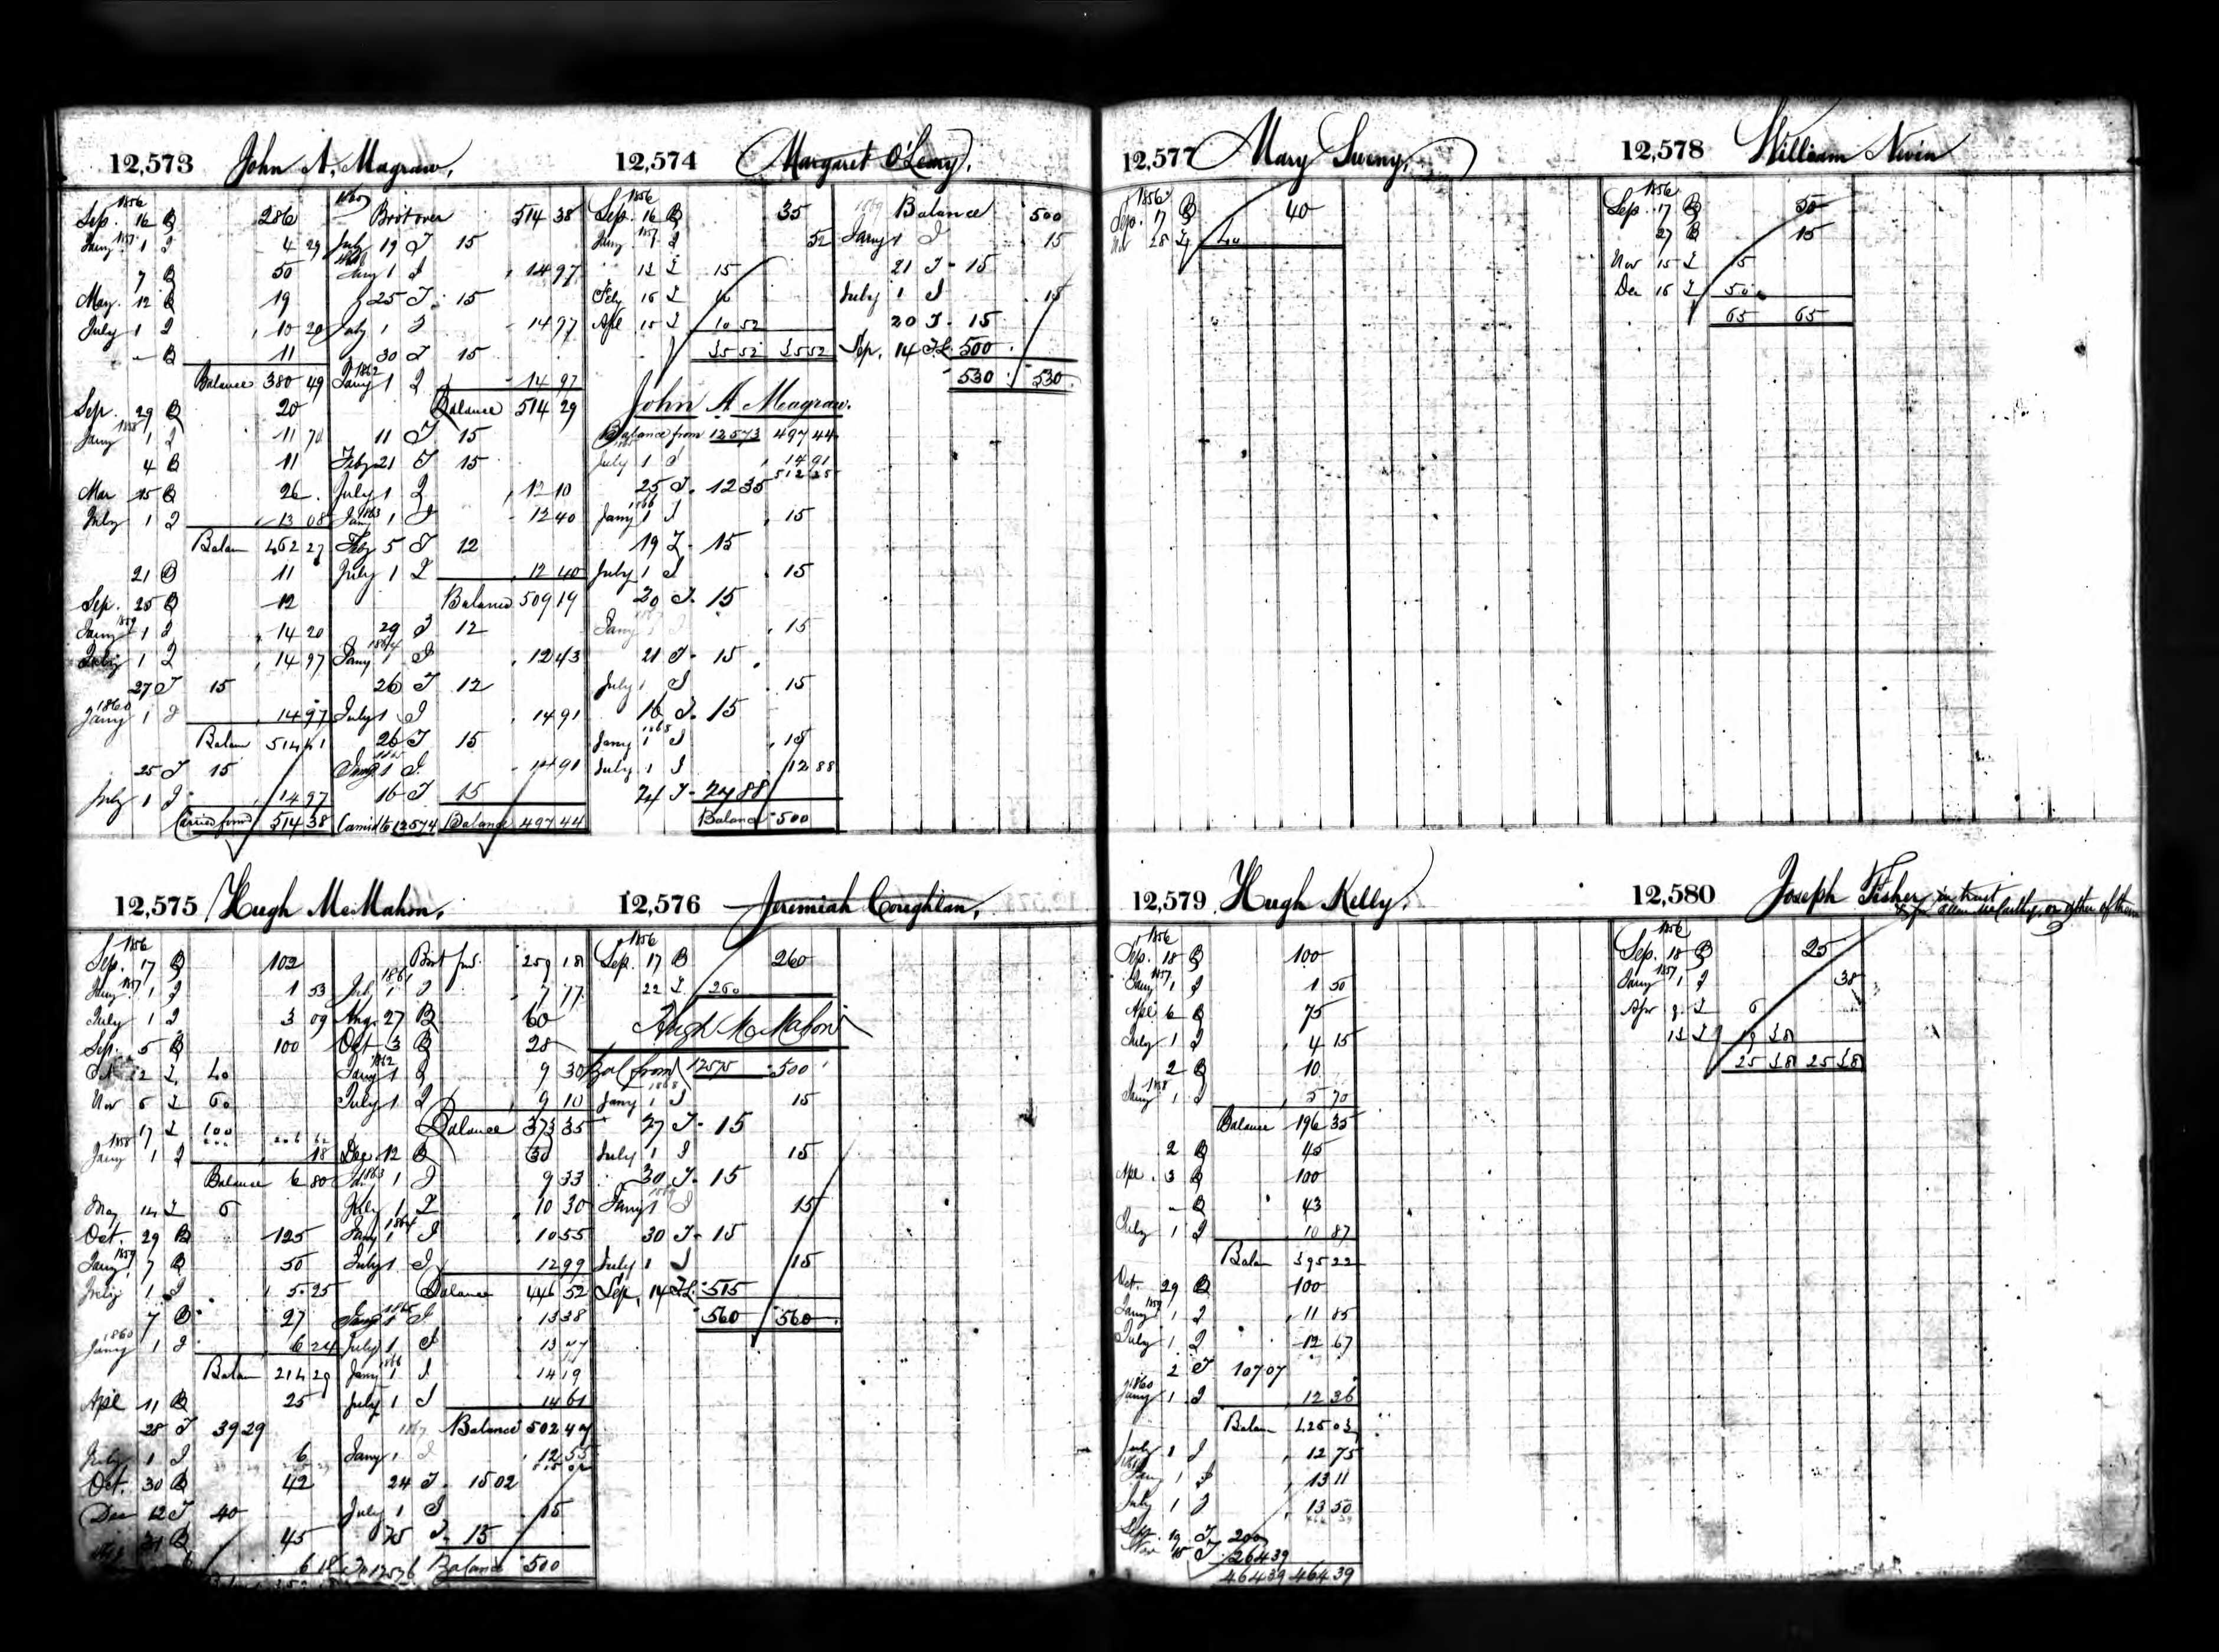 12,573 John A. Magraw.
1856
Sep. 16 B 286
Jany 1857 1 I 4 29
7 B 50
May. 12 B 19
July 1 I 10 20
- B 11
Balance 380 49
Sep. 29 B 20
Jany 1858 1 I 11 70
4 B 11
Mar 15 B 26
July 1 I 13 08
Balan 462 27
21 B 11
Sep. 25 B 12
Jany 1859 1 I 14 20
July 1 I 14 97
27 T 15
1860
Jany 1 I 14 97
Balan 514 41
25 T 15
July 1 I 14 97
Carried forwd 514 38
Brot over 514 38
July 19 T 15
Jany 1 I 14 97
25 T 15
July 1 I 14 97
30 T 15
1862
Jany 1 I 14 97
Balance 514 29
11 T 15
Feby 21 T 15
July 1 I 12 10
Jany 1863 1 I 12 40
Feby 5 T 12
July 1 I 12 40
Balance 509 19
29 T 12
1864
Jany 1 I 12 43
26 T 12
July 1 I 14 91
26 T 15
Jany 1 I 14 91
16 T 15
Carried to 12574 Balance 497 44
12,574 Margaret O'Leary.
1856
Sep. 16 B 35
Jany 1857 1 I 52
12 T 15
Feby 16 T 10
Apl 15 T 10 52
35 52 35 52
John A Meagraw.
Balance from 12573 497 44
July 1 I 14 91
512 35
25 T 12 35
1866
Jany 1 I 15
19 T 15
July 1 I 15
20 T 15
Jany 1 I 15
21 T 15
July 1 I 15
16 T 15
1868
Jany 1 I 15
July 1 I 12 88
24 T 27 88
Balance 500
1869 Balance 500
Jany 1 I 15
21 T 15
July 1 I 15
20 T 15
Sep. 14 T 500
530 530
12,575 Hugh McMahon.
1856
Sep. 17 B 102
Jany 1857 1 I 1 53
July 1 I 3 09
Sep. 5 B 100
Oct 12 T 40
Nov 6 T 60
17 T 100
206 62
1858
Jany 1 I 18
Balance 6 80
May 14 T 6
Oct. 29 B 125
Jany 1859 7 B 50
July 1 I 5 25
7 B 27
1860
Jany 1 I 6 24
Balan 214 29
Apl 11 B 25
28 T 39 29
July 1 I 6
Oct. 30 B 42
Dec 12 T 40
31 B 45
6 18
Brot fwd. 259 18
1861
July 1 I 7 77
Aug. 27 B 60
Oct 3 B 28
1862
Jany 1 I 9 30
July 1 I 9 10
Balance 373 35
Dec 12 B 30
1863
Jany 1 I 9 33
July 1 I 10 30
1864
Jany 1 I 10 55
July 1 I 12 99
Balance 446 52
1865
Jany 1 I 13 38
July 1 I 13 77
1866
Jany 1 I 14 19
July 1 I 14 61
1867 Balance 502 47
Jany 1 I 12 55
24 T 15 02
July 1 I 15
25 T 15
To 12576 Balance 500
12,576 Jeremiah Coughlan.
1856
Sep. 17 B 260
22 T 260
Hugh McMahon
Bal from 12575 500
1868
Jany 1 I 15
27 T 15
July 1 I 15
30 T 15
1869
Jany 1 I 15
30 T 15
July 1 I 15
Sep. 14 T 515
560 560
12,577 Mary Surny.
1856
Sep. 17 B 40
Nov 28 T 40
12,578 William Nevin
1856
Sep. 17 B 50
27 B 15
Nov 15 T 15
Dec 16 T 50
65 65
12,579 Hugh Kelly.
1856
Sep. 18 B 100
Jany 1857 1 I 1 50
Apl 6 B 75
July 1 I 4 15
2 B 10
1858
Jany 1 I 5 70
Balance 196 35
2 B 45
Apl. 3 B 100
- B 43
July 1 I 10 87
Balan 395 22
Oct. 29 B 100
Jany 1859 1 I 11 85
July 1 I 12 67
2 T 107 07
1860
Jany 1 I 12 36
Balan 425 03
July 1 I 12 75
Jany 1 I 13 11
July 1 I 13 50
Sep. 19 T 200
Nov 15 T 264 39
464 39 464 39
12,580 Joseph Fisher in trust for Ellen McCarthy, or either of them
1856
Sep. 18 B 25
1857
Jany 1 I 38
Apr 8 T 6
13 T 19 38
25 38 25 38